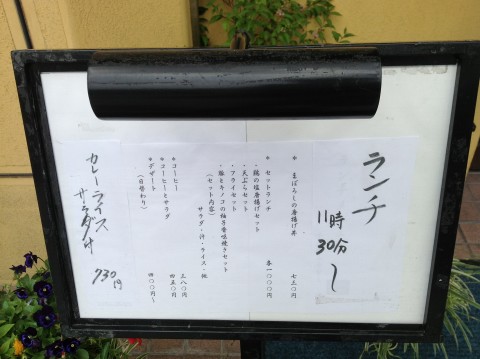 ランチ
11時
30分〜
＊まぼろしの唐揚げ丼 七三〇
＊セットランチ 各一〇〇〇
・鶏の塩唐揚げセット
・天ぷらセット
・フライセット
・豚とキノコの柚子香味焼きセット
(セット内容)
サラダ・汁・ライス・他
＊コーヒー 三八〇
＊コーヒーとサラダ 四五〇
＊デザート 四〇〇〜
(日替わり)
カレーライス
サラダ付
930円